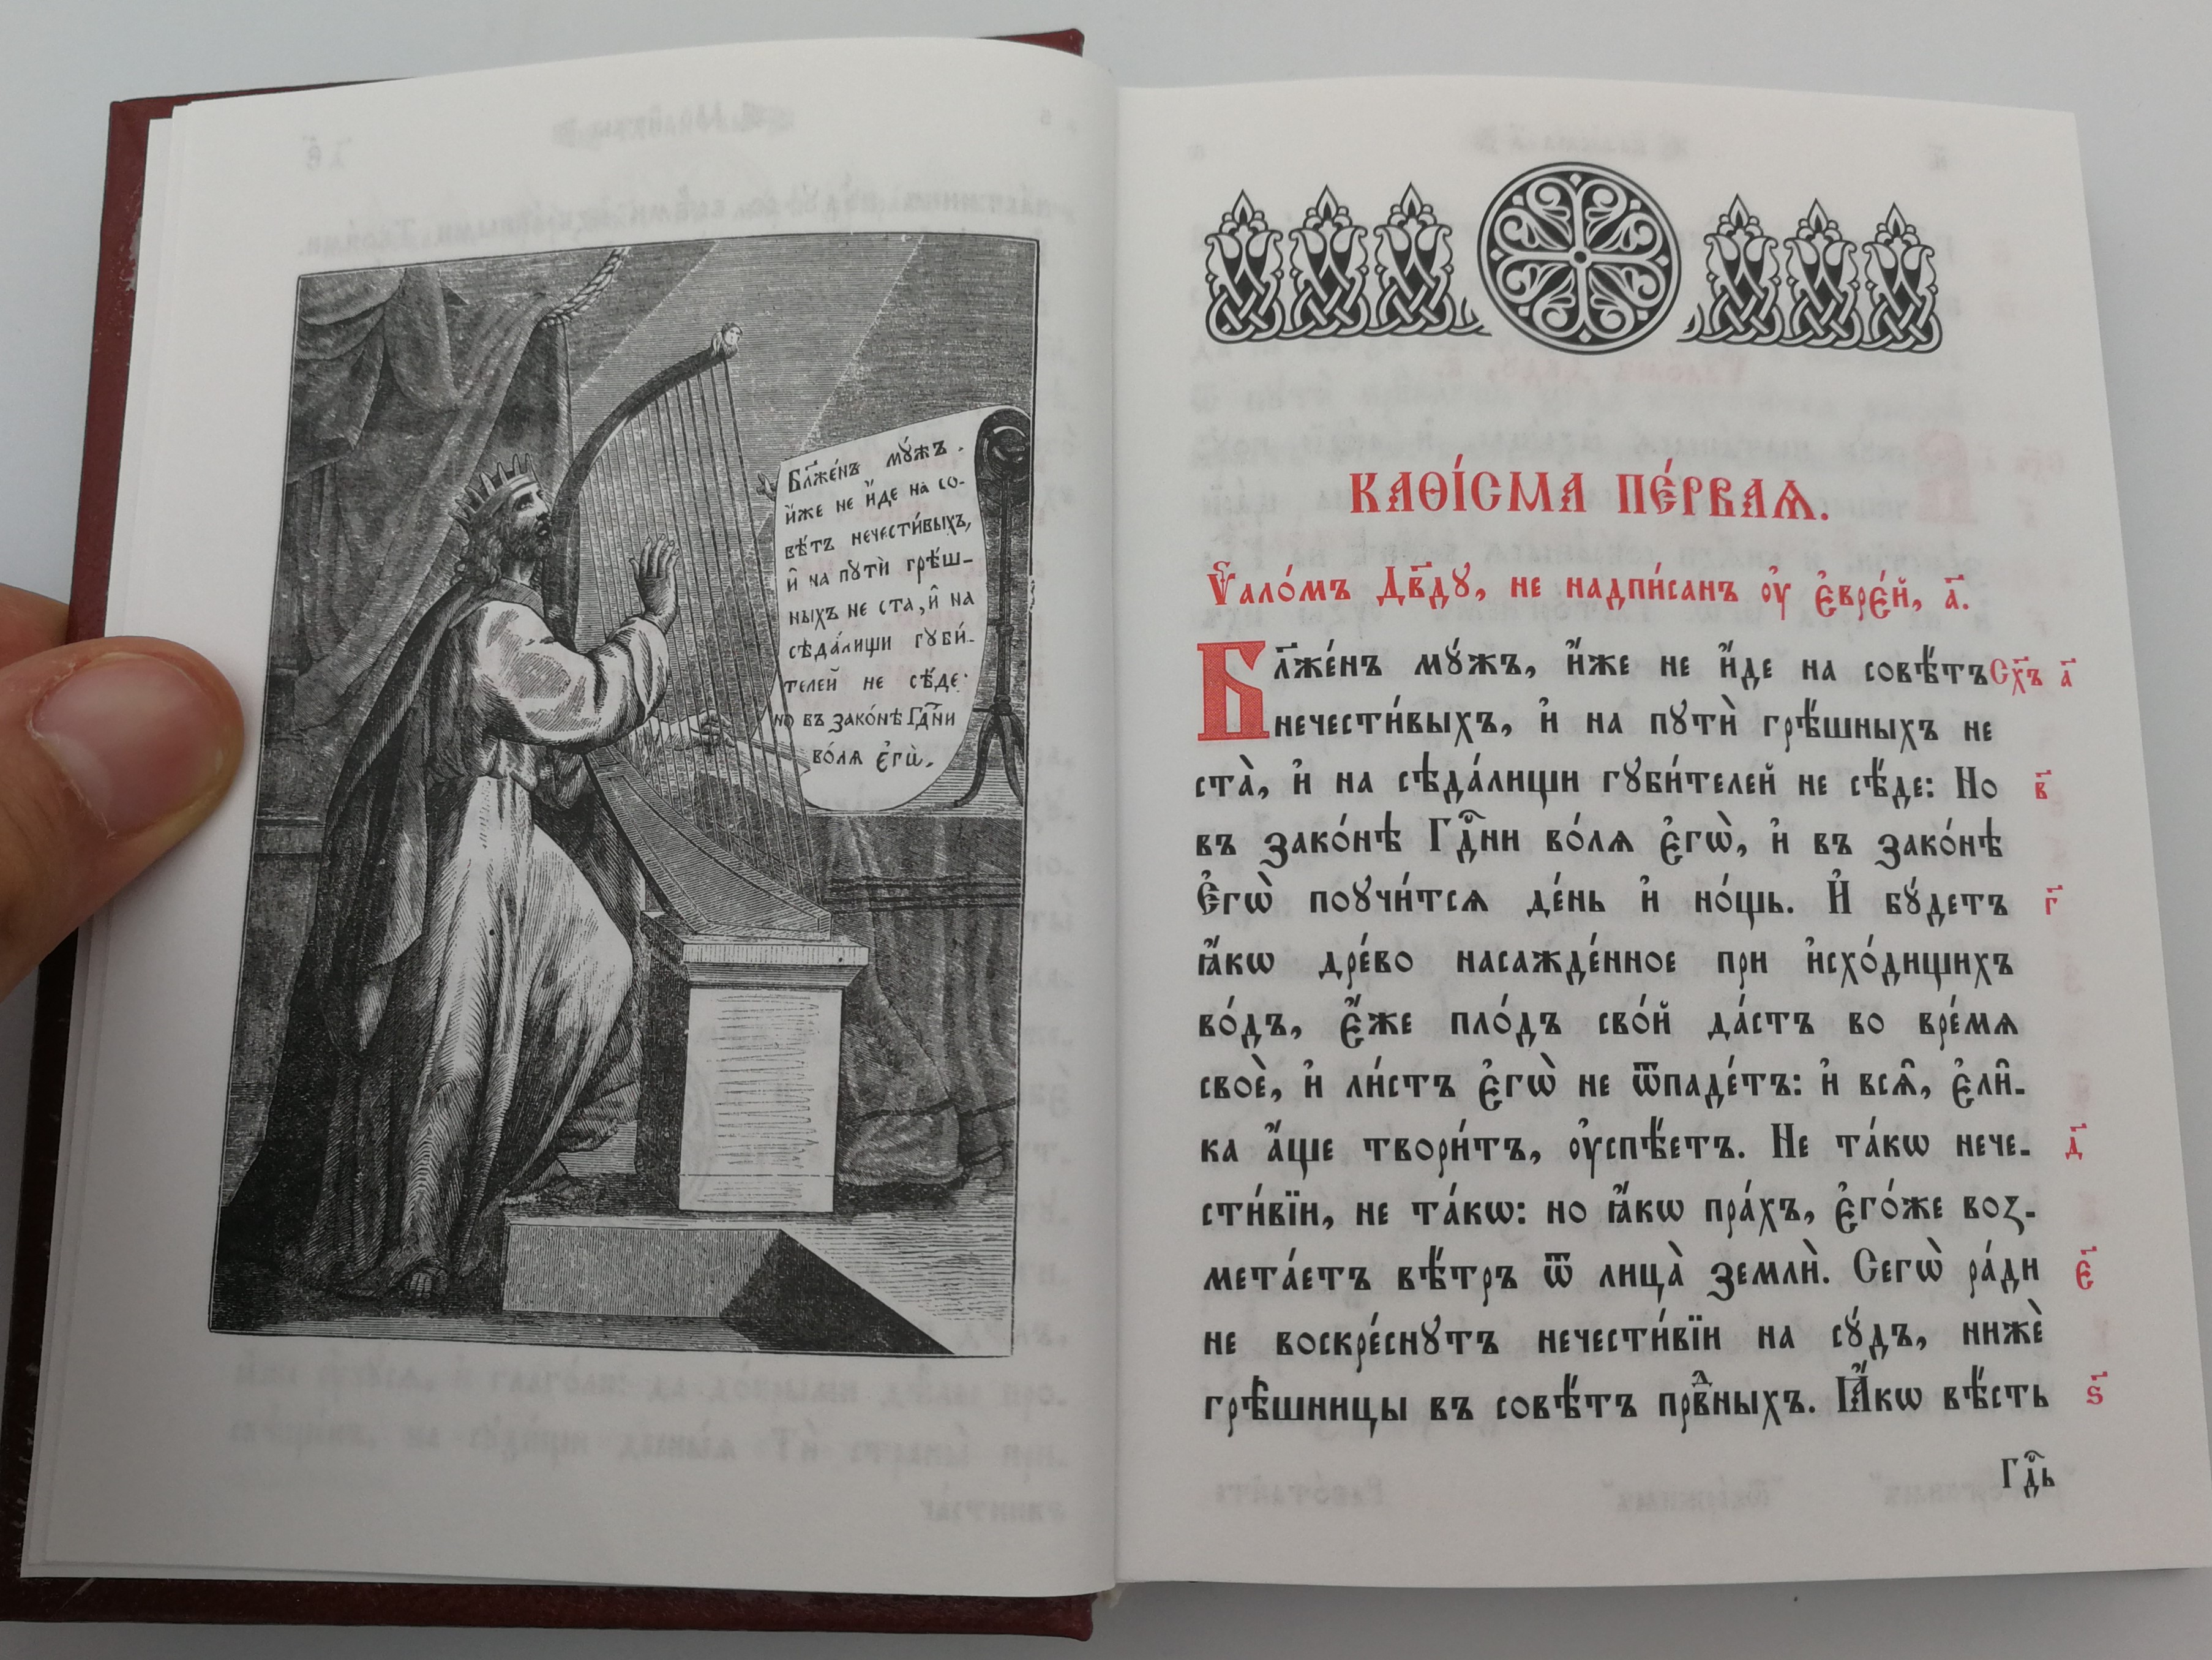 Бл҃же́нъ мꙋ́жъ.
и҆́же не и҆́де на со-
вѣ́тъ нечести́выхъ,
и҆ на пꙋтѝ грѣ́ш-
ныхъ не ста, и҆ на
сѣда́лищи гꙋби́-
телей не сѣ́де:
но въ зако́нѣ Гдⷭ҇ни
во́лѧ є҆гѡ̀.
КАѲІ́СМА ПЕ́РВАѦ.
Ѱало́мъ Дв҃дꙋ, не надпи́санъ ᲂу҆ є҆вре́й, а҃.
Бл҃же́нъ мꙋ́жъ, и҆́же не и҆́де на совѣ́тъ Сх҃ъ а҃
нечести́выхъ, и҆ на пꙋтѝ грѣ́шныхъ не
ста̀, и҆ на сѣда́лищи гꙋби́телей не сѣ́де: Но в҃
въ зако́нѣ Гдⷭ҇ни во́лѧ є҆гѡ̀, и҆ въ зако́нѣ
Є҆гѡ̀ поꙋчи́тсѧ де́нь и҆ но́щь. И҆ бꙋ́детъ г҃
ꙗ҆́кѡ дре́во насажде́нное при и҆схо́дищихъ
во́дъ, є҆́же пло́дъ сво́й да́стъ во вре́мѧ
своѐ, и҆ ли́стъ є҆гѡ̀ не ѿпаде́тъ: и҆ всѧ̑, є҆ли̑-
ка а҆́ще твори́тъ, ᲂу҆спѣ́етъ. Не та́кѡ нече- д҃
сти́вїи, не та́кѡ: но ꙗ҆́кѡ пра́хъ, є҆го́же воз-
мета́етъ вѣ́тръ ѿ лица̀ землѝ. Сегѡ̀ ра́ди є҃
не воскре́снꙋтъ нечести́вїи на сꙋ́дъ, нижѐ
грѣ̑шницы въ совѣ́тъ првⷣныхъ. Ꙗ҆́кѡ вѣ́сть ѕ҃
Гдⷭ҇ь